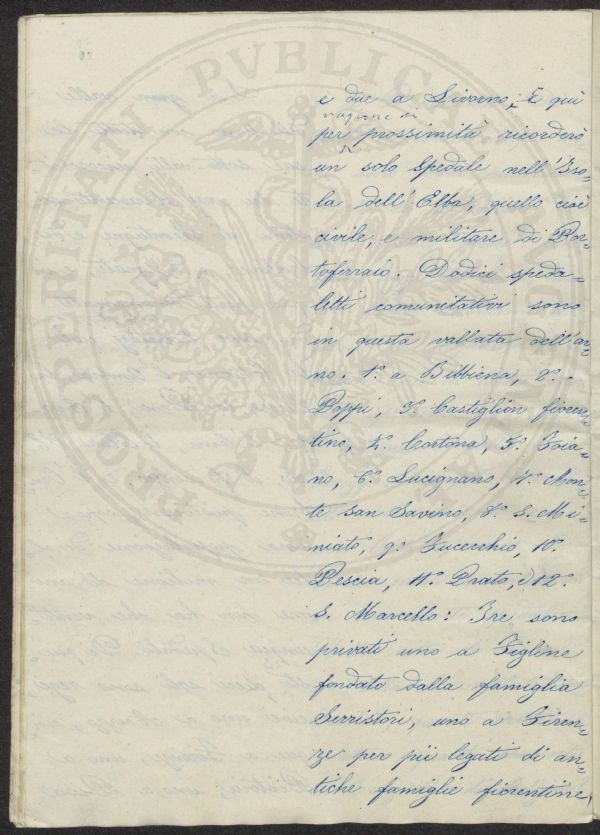 PROSPERITATI PVBLICAE
e due a Livorno; E quì
ragione di
per prossimità ricorderò
un solo Spedale nell'Iso=
la dell'Elba, quello cioè
civile, e militare di Por=
toferraio. Dodici speda=
letti comunitativi sono
in questa vallata dell'ar=
no. 1.° a Bibbiena, 2.°
Poppi, 3.° Castiglion fioren=
tino, 4.° Cortona, 5.° Foia=
no, 6.° Lucignano, 7.° Mon=
te San Savino, 8.° S. Mi=
niato, 9.° Fucecchio, 10.°
Pescia, 11.° Prato, 12.°
S. Marcello: Tre sono
privati uno a Figline
fondato dalla famiglia
Serristori, uno a Firen=
ze per più legati di an=
tiche famiglie fiorentine,